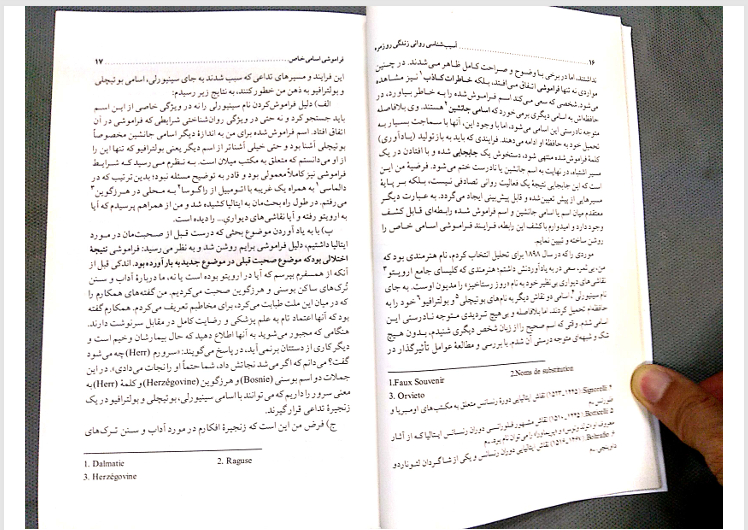 ۱۶
آسیب‌شناسی روانی زندگی روزمره
نداشتند، اما در برخی با وضوح و صراحت کامل ظاهر می‌شدند. در چنین
مواردی نه تنها فراموشی اتفاق می‌افتد، بلکه خاطرات کاذب۱ نیز مشاهده
می‌شود. شخصی که سعی می‌کند اسم فراموش‌شده را به خاطر بیاورد، در
حافظه‌اش به اسامی دیگری برمی‌خورد که اسامی جانشین۲ هستند. وی بلافاصله
متوجه نادرستی این اسامی می‌شود، اما با وجود این، آنها با سماجت بسیار به
تحمیل خود به حافظهٔ او ادامه می‌دهند. فرایندی که باید به بازتولید (یادآوری)
کلمهٔ فراموش‌شده منتهی شود، دستخوش یک جابجایی شده و با افتادن در یک
مسیر اشتباه، در نهایت به اسم جانشین یا نادرست ختم می‌شود. فرضیهٔ من این
است که این جابجایی نتیجهٔ یک فعالیت روانی تصادفی نیست، بلکه بر پایهٔ
مسیرهایی از پیش تعیین‌شده و قابل پیش‌بینی ایجاد می‌گردد. به عبارت دیگر
معتقدم میان اسم یا اسامی جانشین و اسم فراموش شده رابطه‌ای قابل کشف
وجود دارد و امیدوارم با کشف این رابطه، فرایند فراموشی اسامی خاص را
روشن ساخته و تبیین نمایم.
موردی را که در سال ۱۸۹۸ برای تحلیل انتخاب کردم، نام هنرمندی بود که
من، بی‌ثمر، سعی در به یادآوردنش داشتم؛ هنرمندی که کلیسای جامع اورویتو۳
نقاشی‌های دیواری بی‌نظیر خود به نام «روز رستاخیز» را مدیون اوست. به جای
نام سینیورلی۴، اسامی دو نقاش دیگر به نام‌های بوتیچلی۵ و بولترافیو۶ خود را به
حافظه‌ام تحمیل کردند، اما بلافاصله و بی‌هیچ تردیدی متوجه نادرستی این
اسامی شدم. وقتی که اسم صحیح را از زبان شخص دیگری شنیدم، بدون هیچ
شک و شبهه‌ای متوجه درستی آن شدم. با بررسی و مطالعهٔ عوامل تأثیرگذار در
1.Faux Souvenir
2.Noms de substitution
3. Orvieto
۴. Signorelli (۱۴۴۵ـ۱۵۲۳) نقاش ایتالیایی دورهٔ رنسانس متعلق به مکتب‌های اومبریا و
فلورانس ـ م
۵. Botticelli نقاش مشهور فلورانسی دوران رنسانس ایتالیا که از آثار
معروف او «تولد ونوس» و «پریماورا» را می‌توان نام برد. ـ م
۶. Boltraffio نقاش ایتالیایی دوران رنسانس و یکی از شاگردان لئوناردو
داوینچی ـ م
فراموشی اسامی خاص
۱۷
این فرایند و مسیرهای تداعی که سبب شدند به جای سینیورلی، اسامی بوتیچلی
و بولترافیو به ذهن من خطور کنند، به نتایج زیر رسیدم:
الف) دلیل فراموش‌کردن نام سینیورلی را نه در ویژگی خاصی از این اسم
باید جستجو کرد و نه حتی در ویژگی روان‌شناختی شرایطی که فراموشی در آن
اتفاق افتاد. اسم فراموش‌شده برای من به اندازهٔ دیگر اسامی جانشین مخصوصاً
بوتیچلی آشنا بود و حتی خیلی آشناتر از اسم دیگر یعنی بولترافیو که تنها این را
از او می‌دانستم که متعلق به مکتب میلان است. به نظرم می‌رسید که شرایط
فراموشی نیز کاملاً معمولی بود و قادر به توضیح مسئله نبود؛ بدین ترتیب که در
دالماسی۱ به همراه یک غریبه با اتومبیل از راگوسا۲ به محلی در هرزگوین۳
می‌رفتم. در طول راه بحث‌مان به ایتالیا کشیده شد و من از همراهم پرسیدم که آیا
به اورویتو رفته و آیا نقاشی‌های دیواریِ... را دیده است.
ب) با به یاد آوردن موضوع بحثی که درست قبل از صحبت‌مان در مورد
ایتالیا داشتیم، دلیل فراموشی برایم روشن شد و به نظر می‌رسید: فراموشی نتیجهٔ
اختلالی بود که موضوع صحبت قبلی در موضوع جدید به بار آورده بود. اندکی قبل از
آنکه از همسفرم بپرسم که آیا در اورویتو بوده است یا نه، ما دربارهٔ آداب و سنن
تُرک‌های ساکن بوسنی و هرزگوین صحبت می‌کردیم. من گفته‌های همکارم را
که در میان این ملت طبابت می‌کرد، برای مخاطبم تعریف می‌کردم. همکارم گفته
بود که آنها اعتماد تام به علم پزشکی و رضایت کامل در مقابل سرنوشت دارند.
هنگامی که مجبور می‌شوید به آنها اطلاع دهید که حال بیمارشان وخیم است و
دیگر کاری از دستتان برنمی‌آید، در پاسخ می‌گویند: «سرورم (Herr) چه می‌شود
گفت؟ می‌دانم که اگر می‌شد نجاتش داد، شما حتماً او را نجات می‌دادی». در این
جملات دو اسم بوسنی (Bosnie) و هرزگوین (Herzégovine) و کلمهٔ (Herr) به
معنی سرور را داریم که می‌توانند با اسامی سینیورلی، بوتیچلی و بولترافیو در یک
زنجیرهٔ تداعی قرار گیرند.
ج) فرض من این است که زنجیرهٔ افکارم در مورد آداب و سنن ترک‌های
1. Dalmatic
2. Raguse
3. Herzégovine